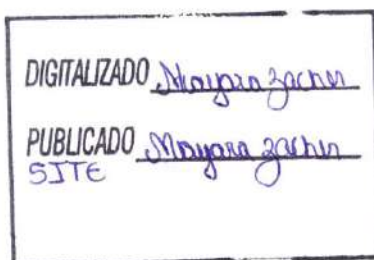 DIGITALIZADO Mayara Zacher
PUBLICADO Mayara Zacher
SITE